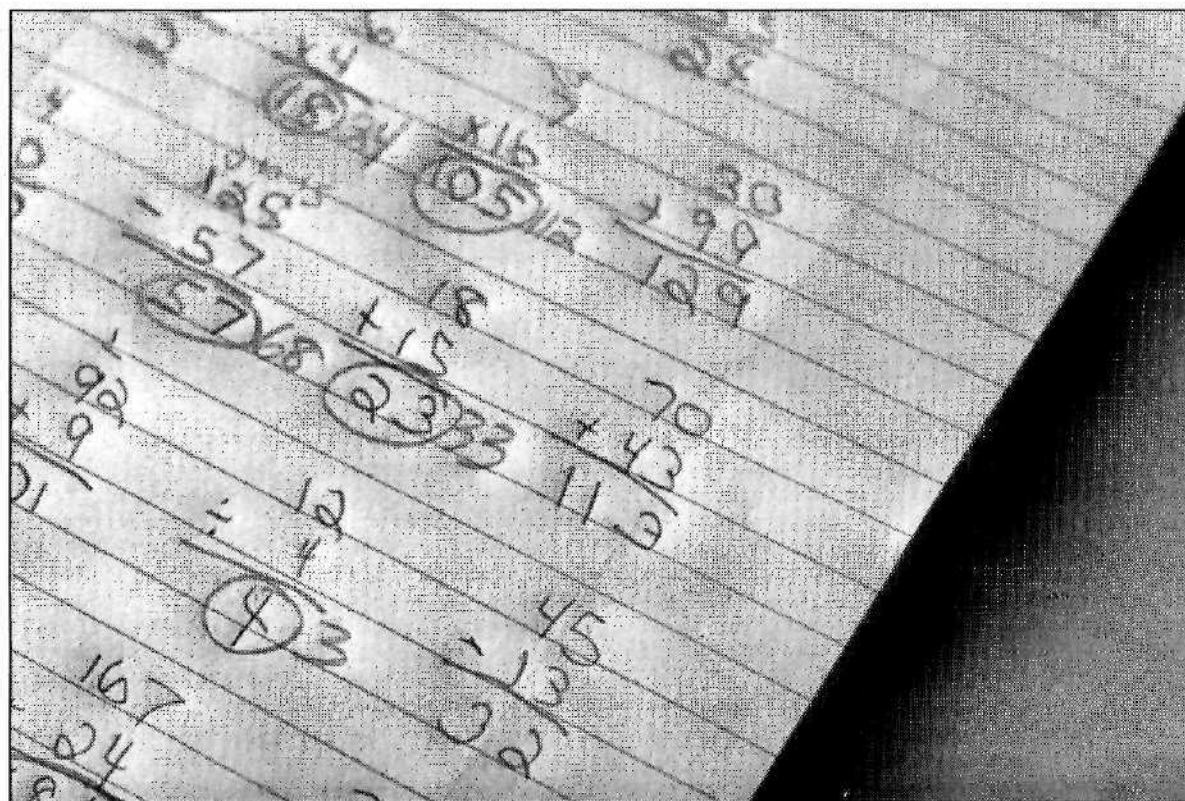 28
× 4
(18) 24
× 16
(105) 112
30
+ 99
129
125
- 57
(57) 68
18
+ 15
(23) 33
70
+ 43
113
92
+ 9
12
÷ 4
(4) 3
45
- 13
32
167
24